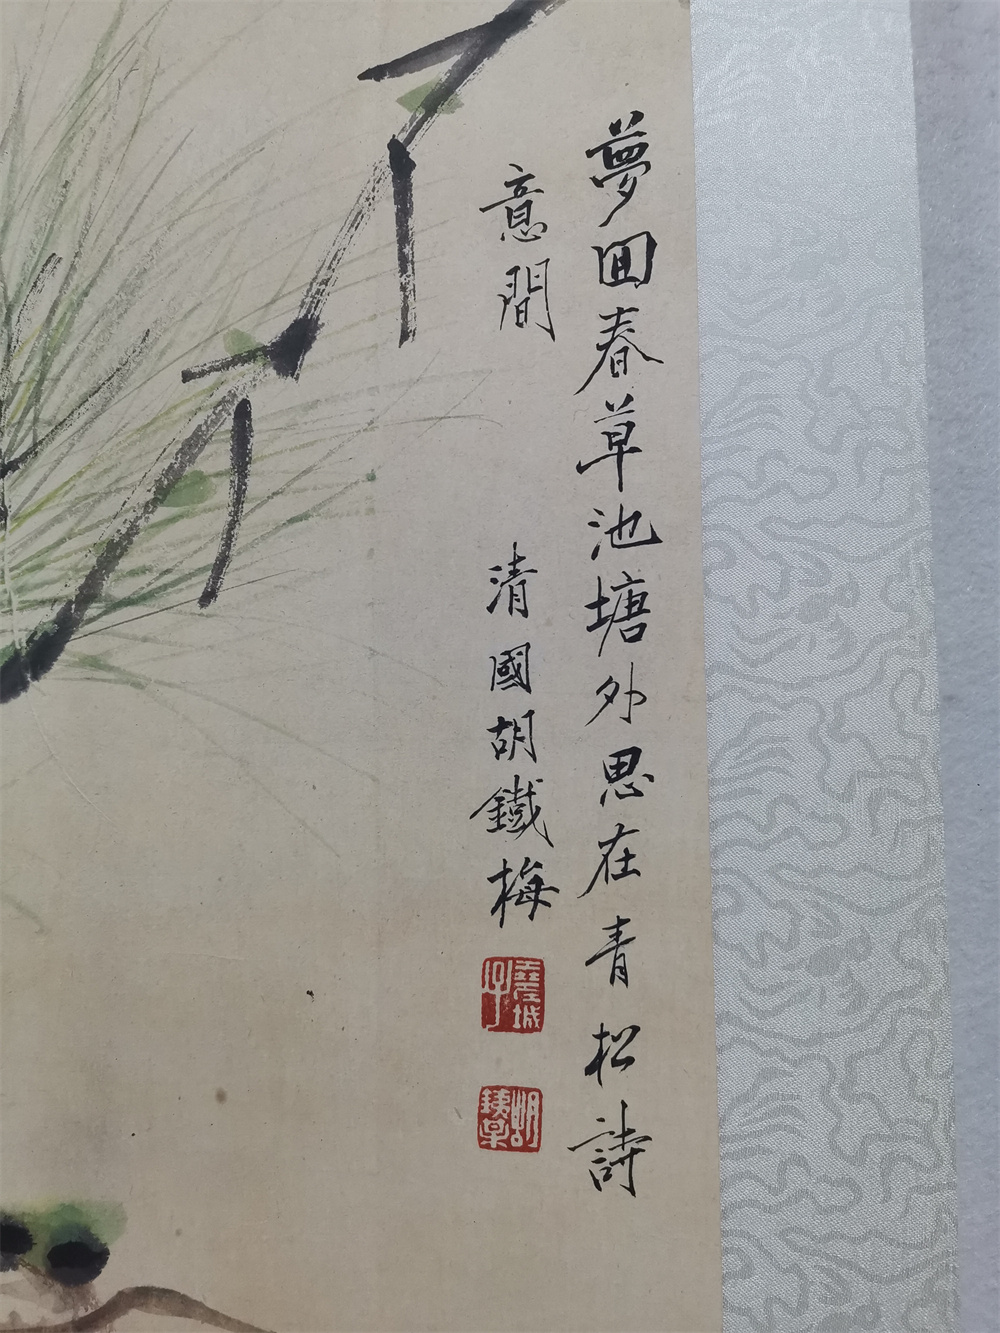 夢囬春草池塘外思在青松詩
意間
清國胡鐵梅
胡鐵某